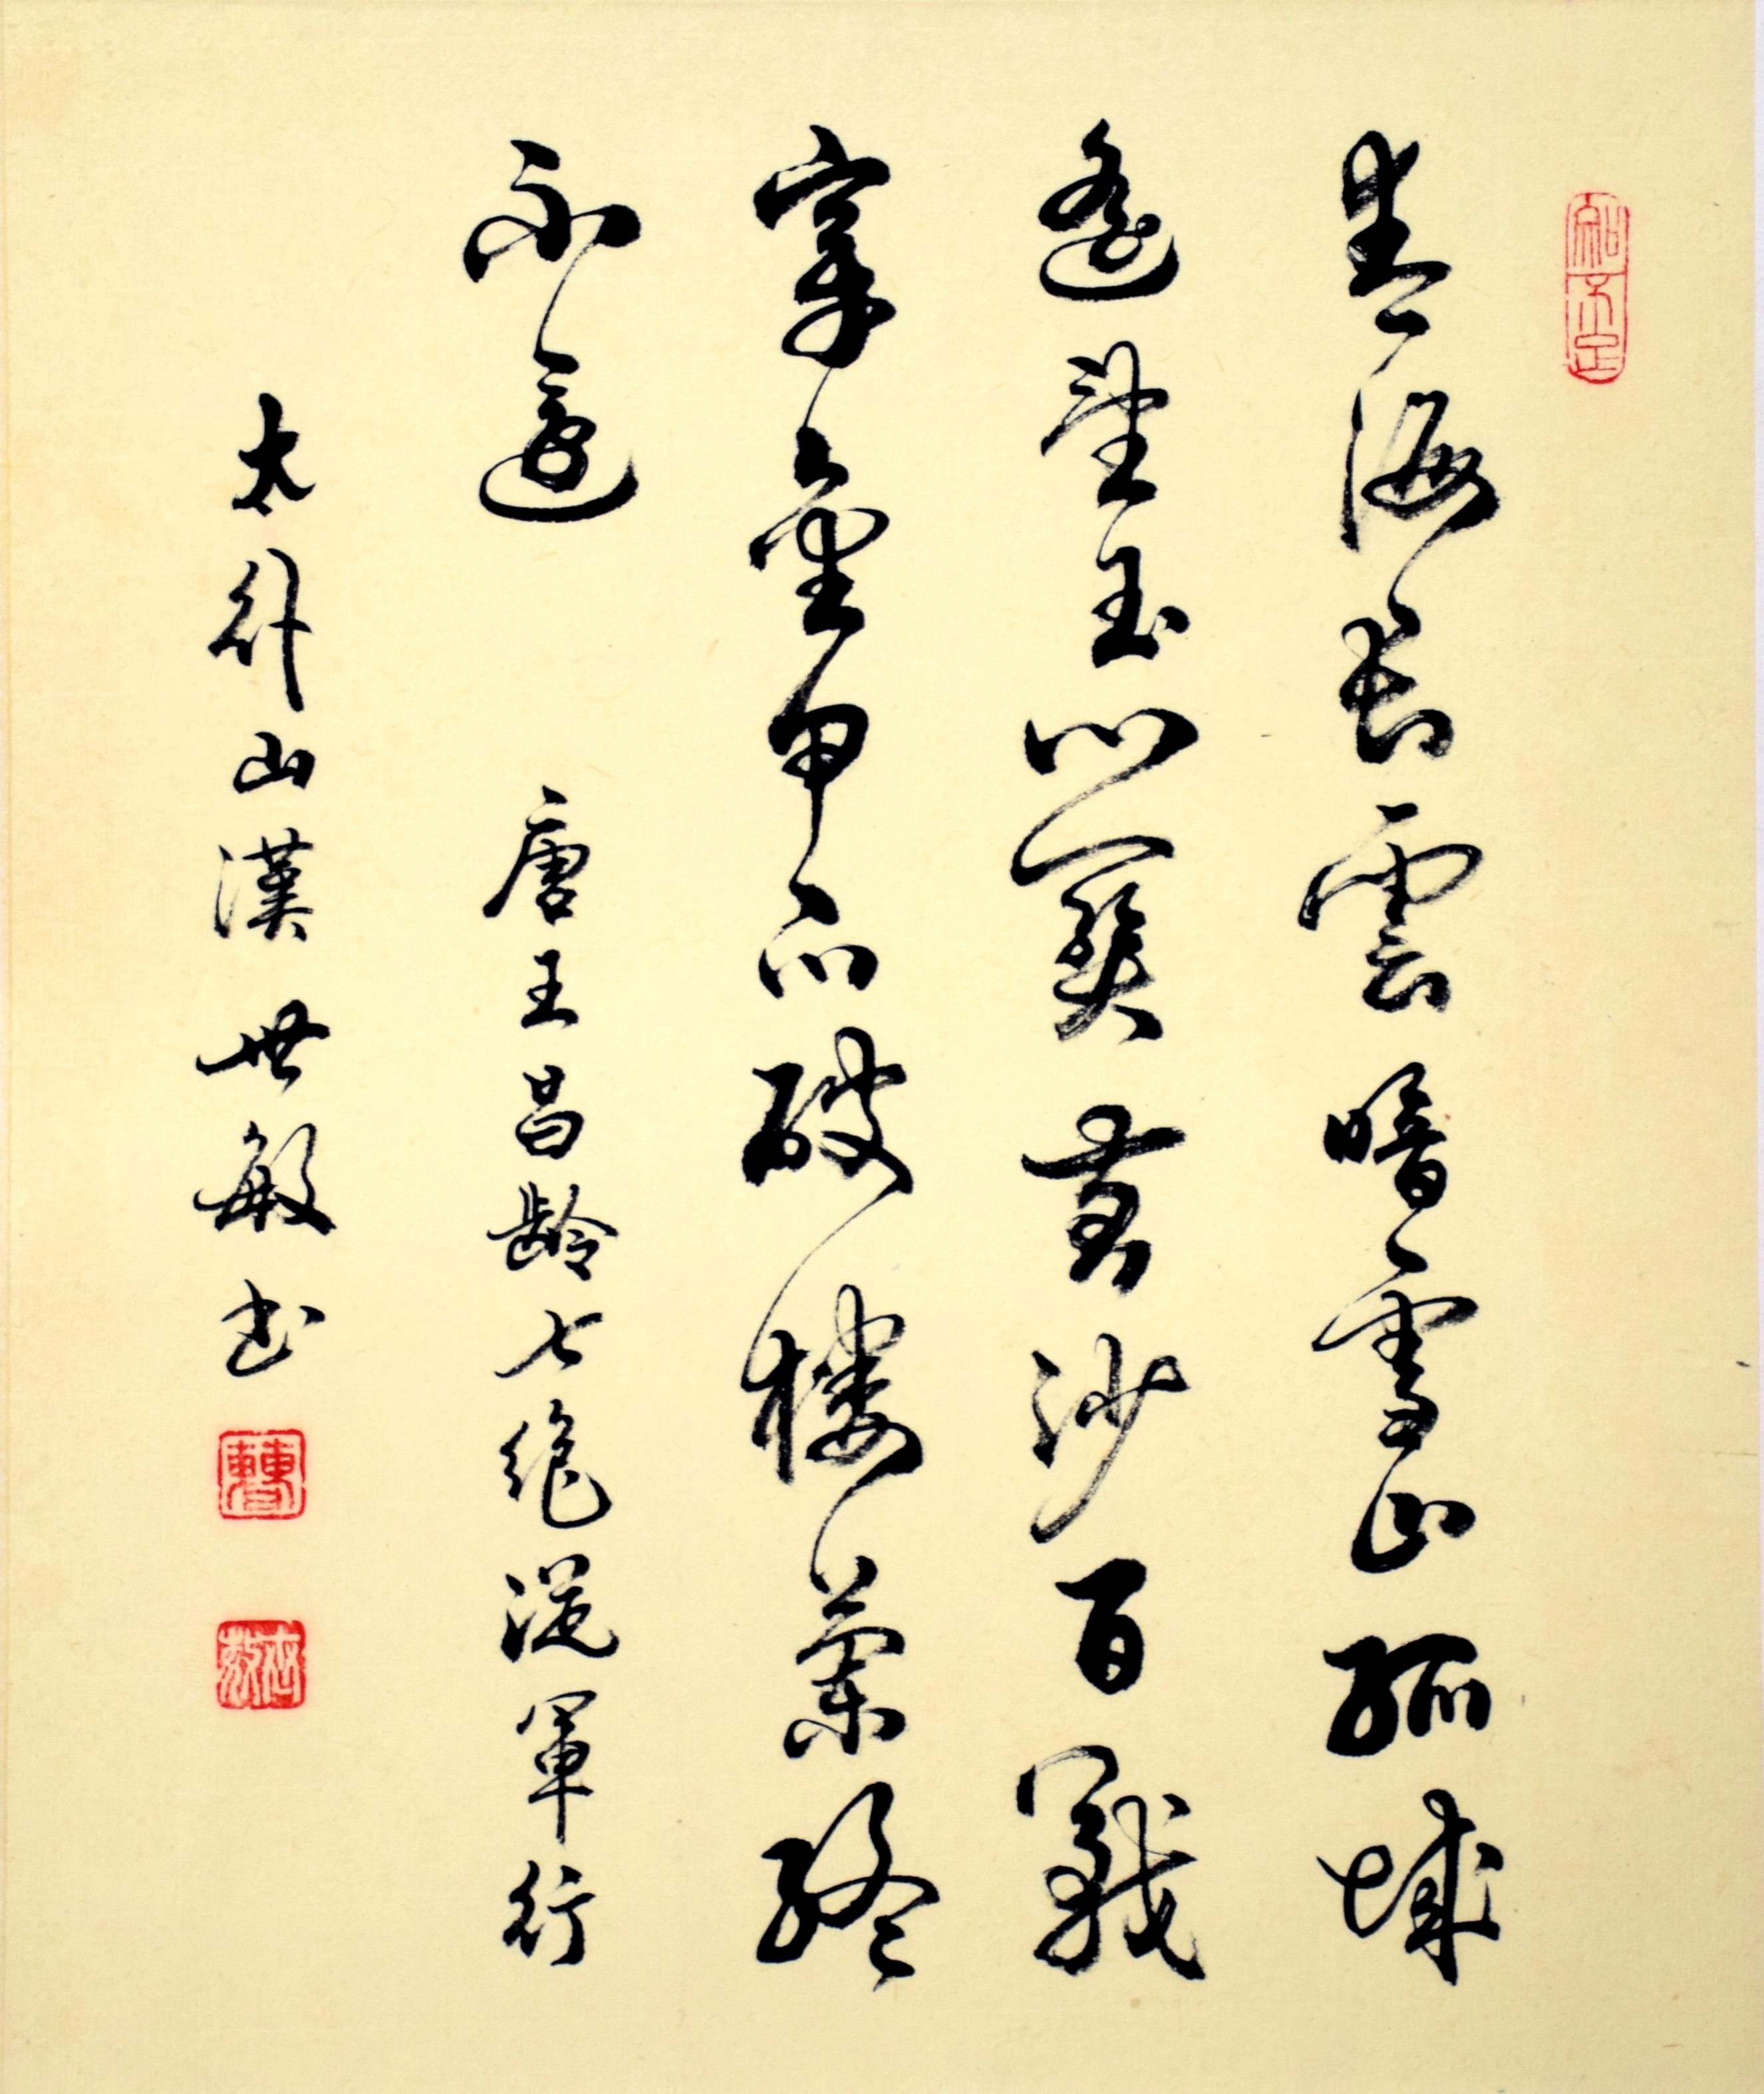 知不足
青海長雲暗雪山孤城
遙望玉門關黃沙百戰
穿金甲不破樓蘭終
不還
唐王昌齡七絕從軍行
太行山漢世敏書
曹
世敏